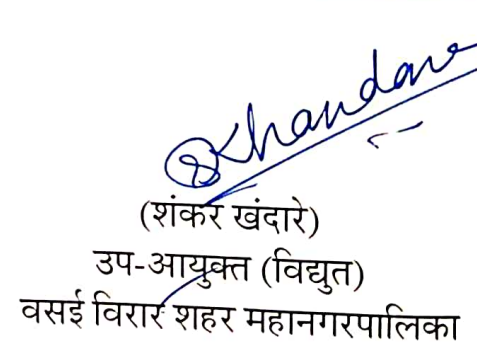 SKhandare
(शंकर खंदारे)
उप-आयुक्त (विद्युत)
वसई विरार शहर महानगरपालिका